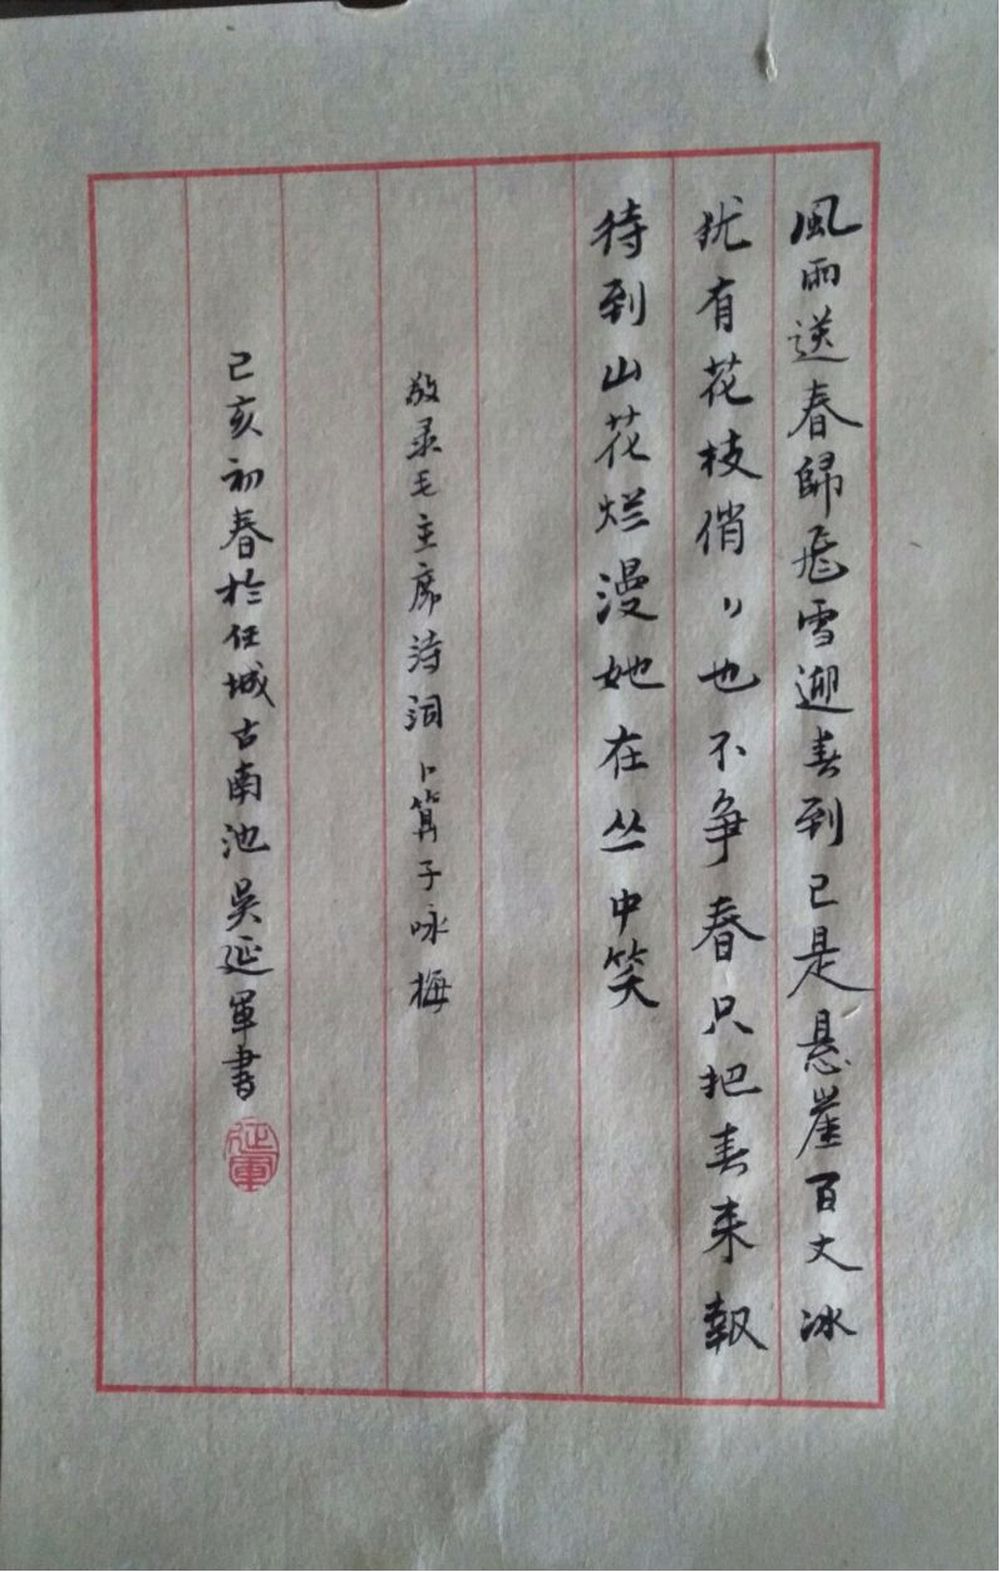 風雨送春歸飛雪迎春到已是悬崖百丈冰
犹有花枝俏〃也不争春只把春来報
待到山花烂漫她在丛中笑
敬录毛主席诗词卜算子咏梅
己亥初春於任城古南池吴延军書
延軍